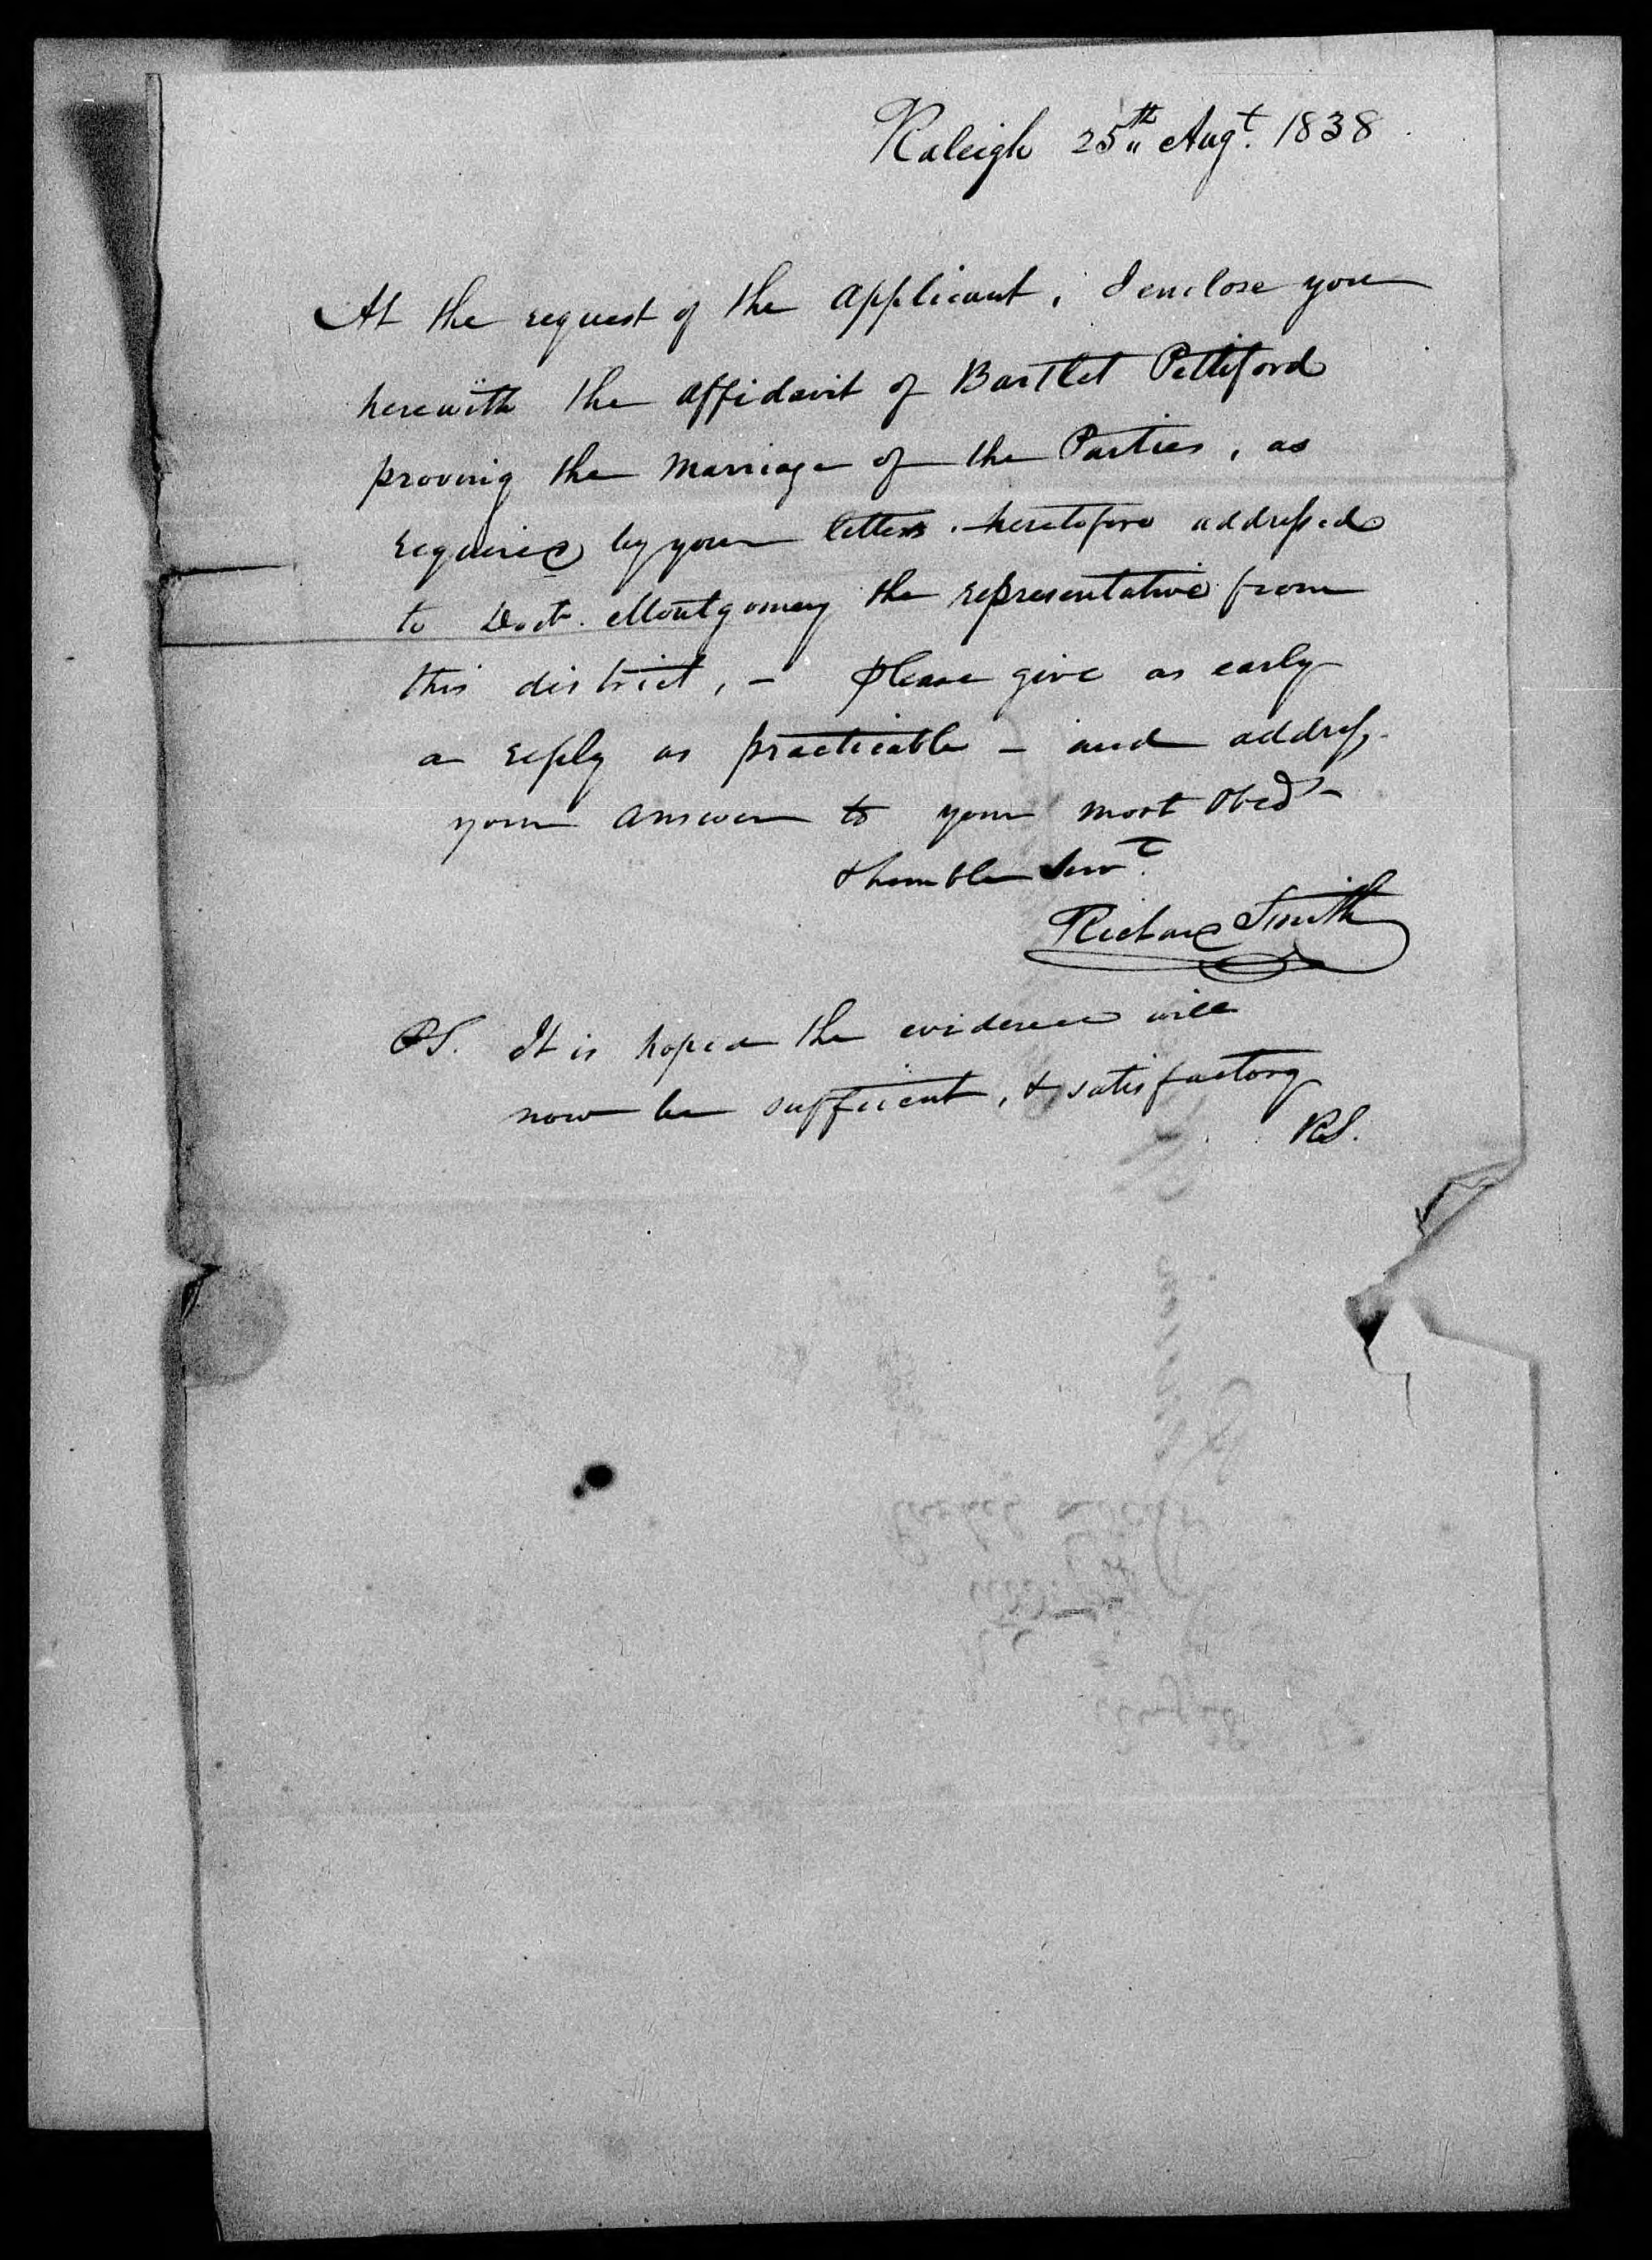 Raleigh 25th Augt. 1838
At the request of the applicant, I enclose you
herewith the affidavit of Bartlet Pettiford
proving the marriage of the Parties, as
required by your letters heretofore addressed
to Doct. Montgomery the representative from
this district, - please give as early
a reply as practicable - and address
your answer to your most obedt
& humble Servt.
Richard Smith
PS. It is hoped the evidence will
now be sufficient, & satisfactory
RS.